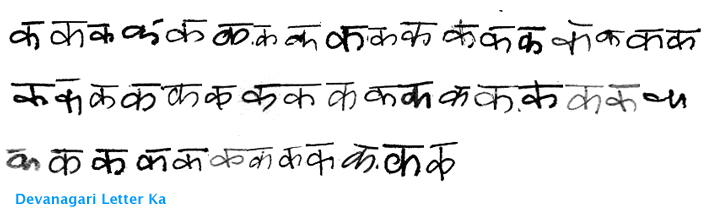 क क क क क क क क क क क क क क क क क क
क क क क क क क क क क क क क क क क क
क क क क क क क क क क क क
Devanagari Letter Ka